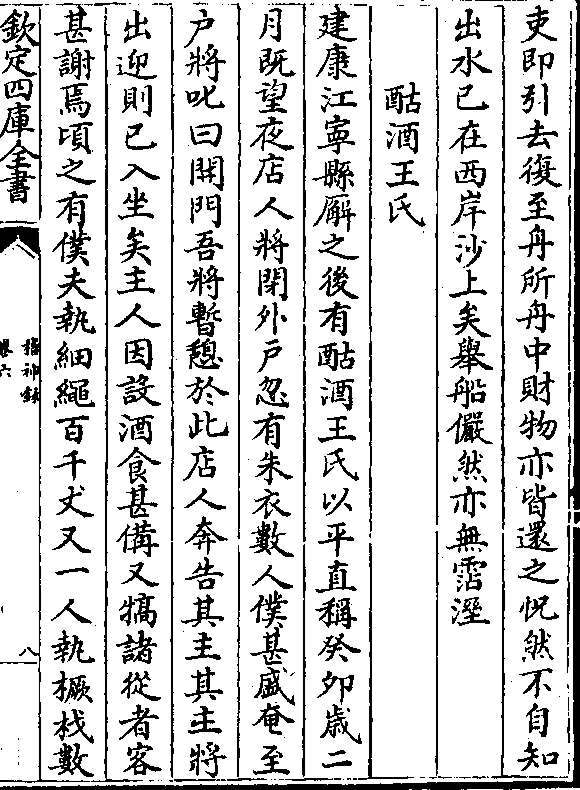 吏即引去復至舟所舟中財物亦皆還之怳然不自知
出水已在西岸沙上矣舉船儼然亦無霑溼
酤酒王氏
建康江寧縣廨之後有酤酒王氏以平直稱癸卯歲二
月既望夜店人將閉外戶忽有朱衣數人僕甚盛奄至
戶將叱曰開門吾將暫憩於此店人奔告其主其主將
出迎則已入坐矣主人因設酒食甚備又犒諸從者客
甚謝焉頃之有僕夫執細繩百千丈又一人執橛杙數
欽定四庫全書
稽神錄
卷六
八